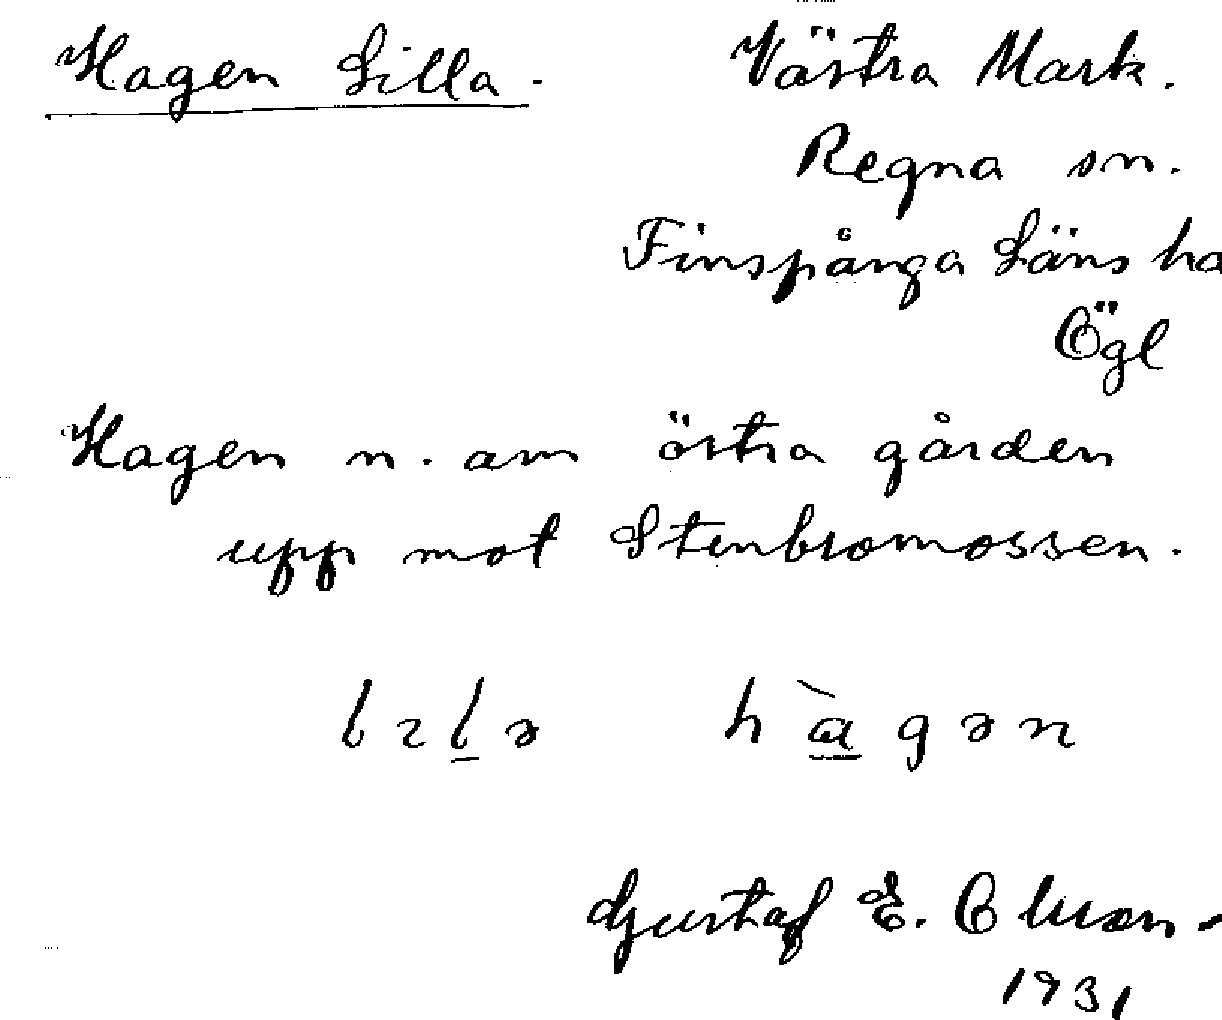 Hagen Lilla. Västra Mark.
Regna sn.
Finspånga Läns ha
Ögl
Hagen n. om östra gården
upp mot Stenbromossen.
lɩl̲ə hà̲gən
Gustaf E. Olsson.
1931